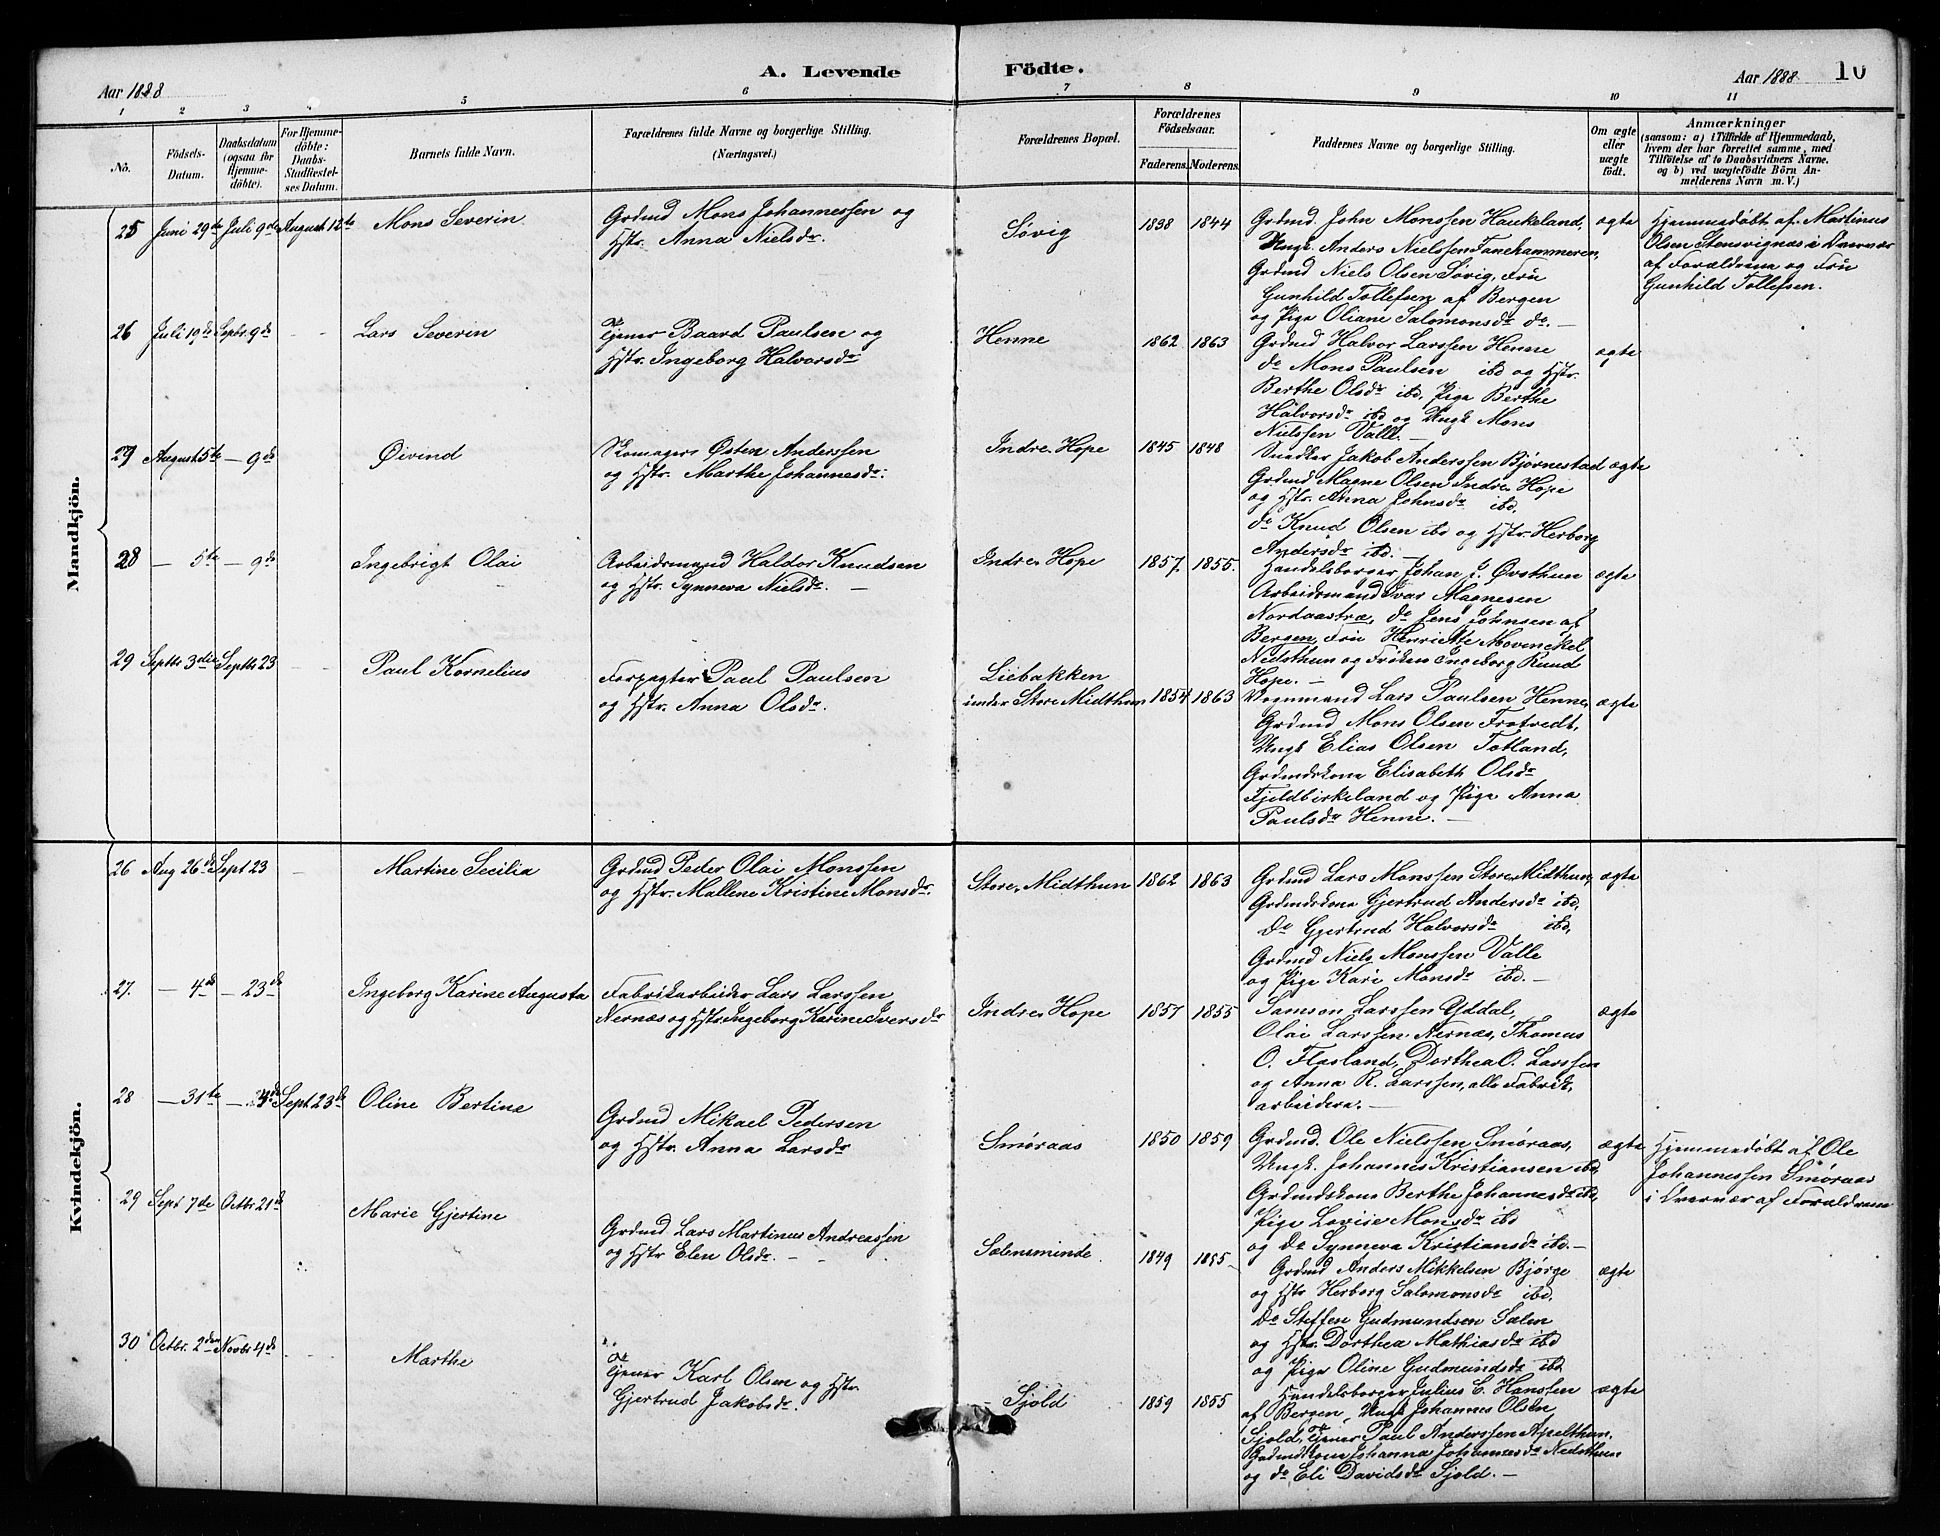 A. Levende Födte.
Aar 1888
Aar 1888 10
1 2 3 4 5 6 7 8 9 10 11
No.
Födsels-Datum.
Daabsdatum (ogsaa for Hjemmedöbte).
For Hjemmedöbte: Daabs-Stadfæstelses Datum.
Barnets fulde Navn.
Forældrenes fulde Navne og borgerlige Stilling.
(Næringsvei.)
Forældrenes Bopæl.
Forældrenes Födselsaar.
Faderens. Moderens.
Faddernes Navne og borgerlige Stilling.
Om ægte eller uægte födt.
Anmærkninger
(saasom: a) i Tilfælde af Hjemmedaab, hvem der har forrettet samme, med Tilföielse af to Daabsvidners Navne, og b) ved uægtefödte Börn Anmelderens Navn m. V.)
Mandkjön.
25 Juni 29de Juli 9de August 12te Mons Severin
Grdmd Mons Johannessen og
Hstr. Anna Nielsdr.
Søvig 1838 1844
Grdmd John Monssen Haukeland,
Ungk. Anders Nielssen Fanehammeren,
Grdmd Niels Olsen Søvig, Fru
Gunhild Tollefsen af Bergen
og Pige Oliane Salomonsdr do. —
ægte
Hjemmedøbt af Martinus
Olsen Stensvignæs i Overvær
af Forældrene og Fru
Gunhild Tollefsen.
26 Juli 19de Septbr. 9de Lars Severin
Tjener Baard Paulsen og
Hstr. Ingeborg Halvorsdr
Henne 1862 1863
Grdmd Halvor Larssen Henne
do Mons Paulsen ibd og Hstr.
Berthe Olsdr ibd, Pige Berthe
Halvorsdr ibd og Ungk Mons
Nielssen Valle. —
ægte
27 August 5te — 9de Øivind
Skomager Østen Anderssen
og Hstr. Marthe Johannesdr.
Indre Hope 1845 1848
Snedker Jakob Anderssen Bjørnestad
Grdmd Magne Olsen Indre Hope
og Hstr. Anna Johnsdr ibd,
do Knud Olsen ibd og Hstr. Herborg
Andersdr ibd. —
ægte
28 — 5te — 9de Ingebrigt Olai
Arbeidsmand Haldor Knudsen
og Hstr. Synneva Nielsdr. —
Indre Hope 1857. 1855.
Handelsborger Johan L. Øvsthun
Arbeidsmand Ivar Magnesen
Nordaastræ, do Jens Johnsen af
Bergen, Fru Henriette Movinckel
Nedsthun og Frøken Ingeborg Rund
Hope. —
ægte
29 Septbr 3die Septbr 23 Paul Kornelius
Forpagter Paul Paulsen
og Hstr. Anna Olsdr.
Liebakken
under Store Midthun 1854 1863
Vognmand Lars Paulsen Henne,
Grdmd Mons Olsen Frotvedt,
Ungk Elias Olsen Totland,
Grdmdskone Elisabeth Olsdr
Fjeldbirkeland og Pige Anna
Paulsdr Henne. —
ægte
Kvindekjön.
26 Aug 26de Sept 23 Martine Secilia
Grdmd Peder Olai Monssen
og Hstr. Mallene Kristine Monsdr.
Store Midthun 1862 1863
Grdmd Lars Monssen Store Midthun,
Grdmdskone Gjertrud Andersdr ibd,
do Gjertrud Halvorsdr ibd,
Grdmd Niels Monssen Valle
og Pige Kari Monsdr ibd. —
ægte
27. — 4de — 23de Ingeborg Karine Augusta
Fabrikarbeider Lars Larssen
Nernæs og Hstr Ingeborg Karine Iversdr
Indre Hope 1857 1855
Samson Larssen Yddal,
Olai Larssen Nernæs, Thomas
O. Flasland, Dorthea O. Larssen
og Anna R. Larssen, alle Fabrik,
arbeidere. —
ægte
28 — 31te Sept 23de Oline Bertine
Grdmd Mikael Pedersen
og Hstr. Anna Larsdr
Smøraas 1850 1859
Grdmd. Ole Nielssen Smøraas,
Ungk. Johannes Kristiansen ibd,
Grdmdskone Berthe Johannesdr ibd,
Pige Lovise Monsdr ibd
og do Synneva Kristiansdr ibd. —
ægte
Hjemmedøbt af Ole
Johannessen Smøraas
i Overvær af Forældrene
29 Sept 7de Octbr. 21de Marie Gjertine
Grdmd. Lars Martinus Andreassen
og Hstr Elen Olsdr. —
Sælensminde 1849 1855
Grdmd Anders Mikkelsen Bjørge
og Hstr Herborg Salomonsdr ibd.
do Steffen Gudmundsen Sælen
og Hstr. Dorthea Mathiasdr ibd
og Pige Oline Gudmundsdr ibd
ægte
30 Octbr. 2den Novbr 4de Marthe
Tjener Karl Olsen og Hstr
Gjertrud Jakobsdr.
Sjold 1859 1855
Handelsborger Julius E. Hanssen
af Bergen, Ungk Johannes Olsen
Sjold, Tjener Paul Anderssen Apelthun,
Grdmdskone Johanna Johannesdr Nedsthun
og do Eli Davidsdr Sjold. —
ægte